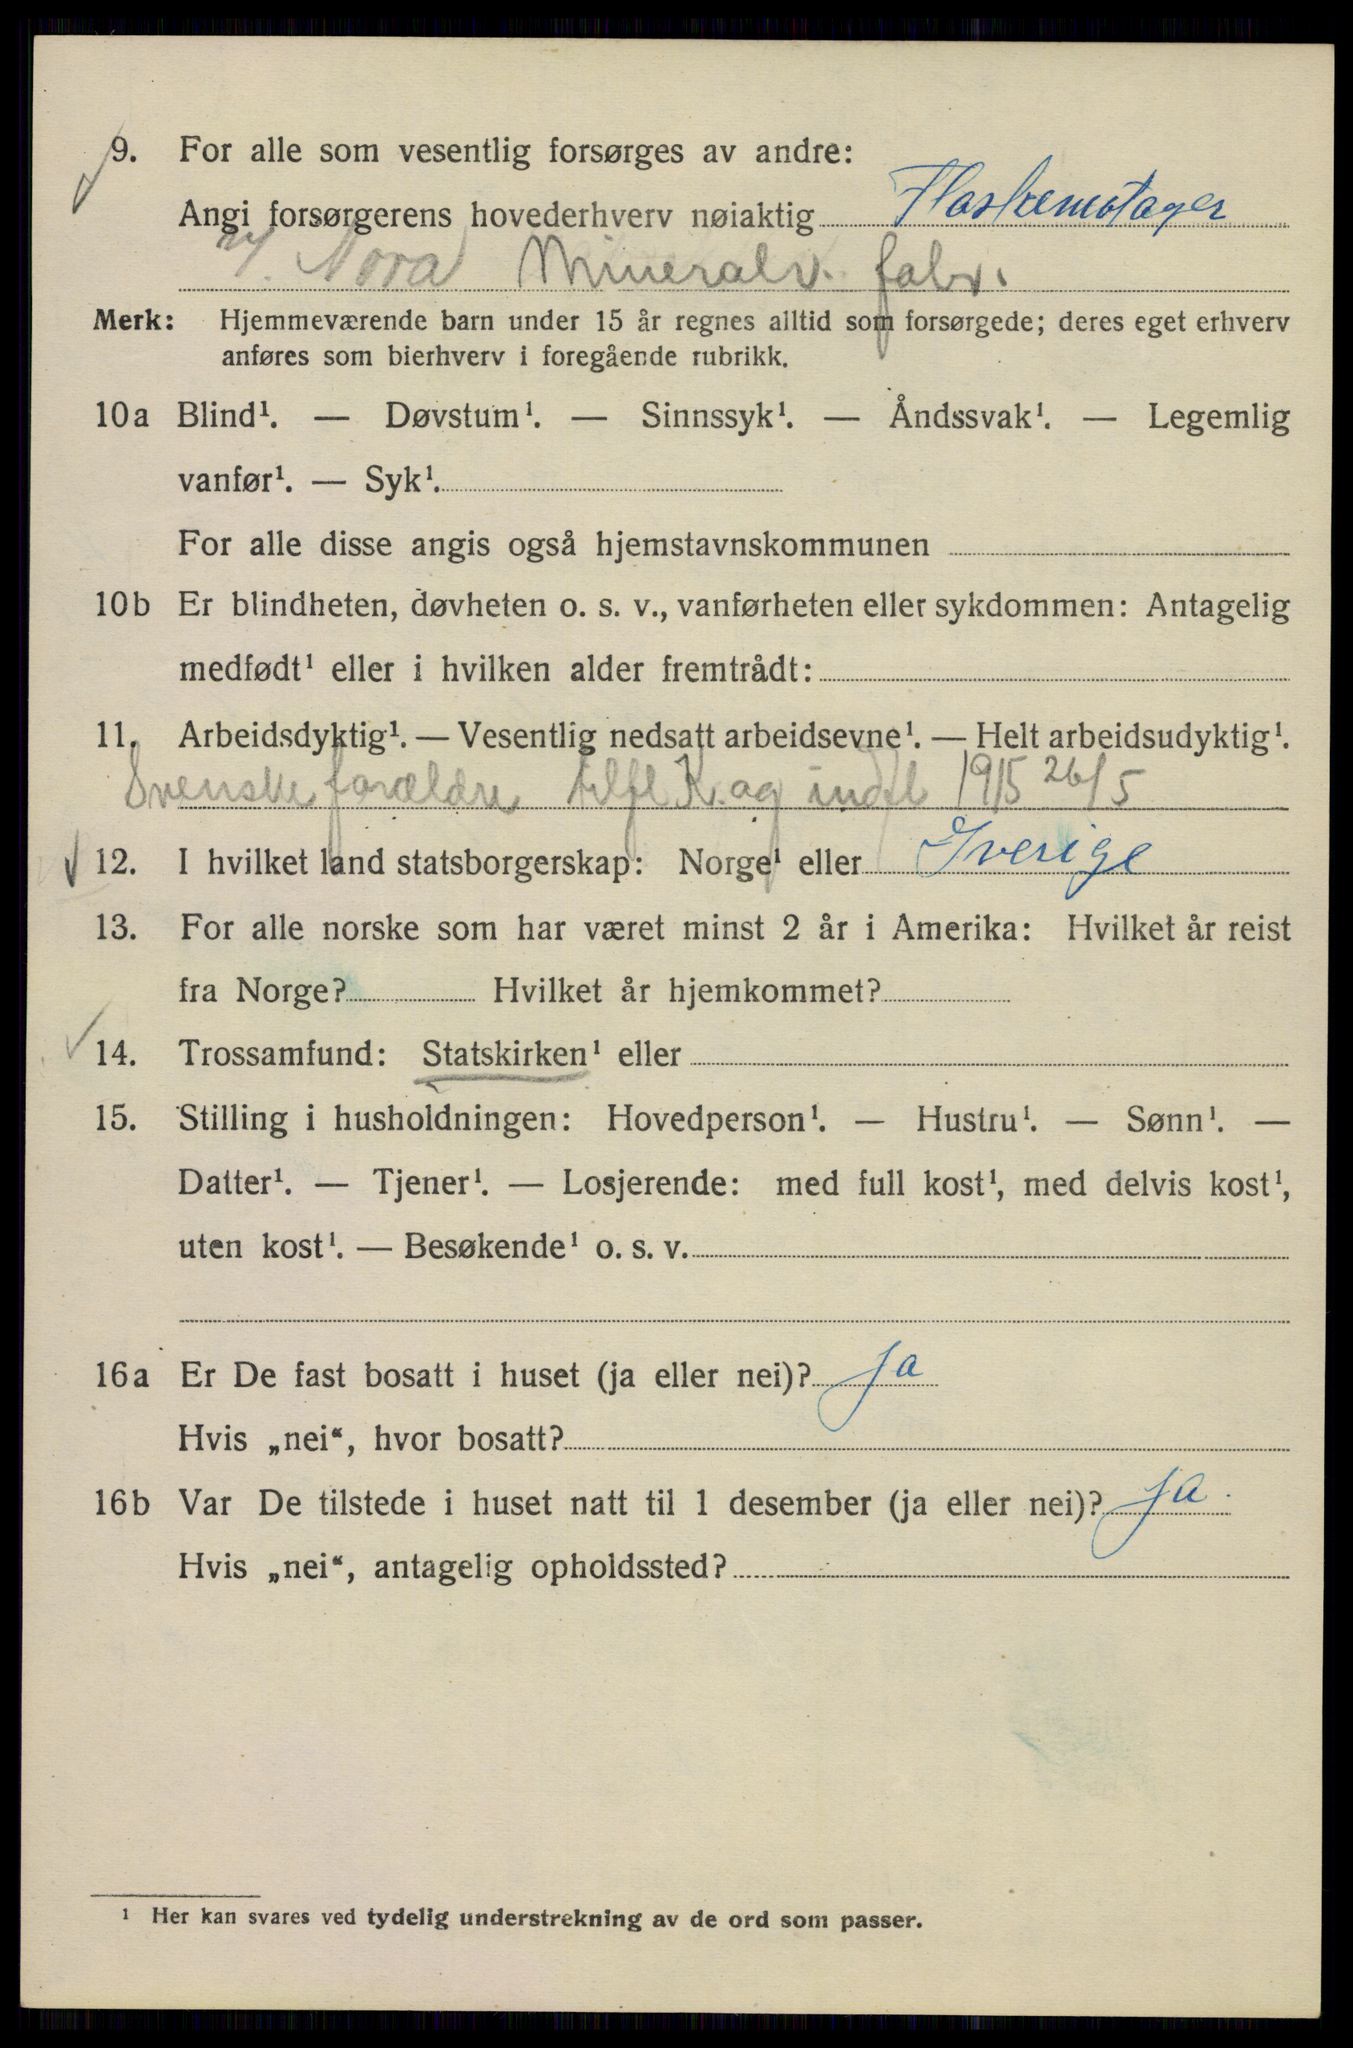 9. For alle som vesentlig forsørges av andre:
Angi forsørgerens hovederhverv nøiaktig Flaskemotager
v/. Nora Mineralv. fabr.
Merk: Hjemmeværende barn under 15 år regnes alltid som forsørgede; deres eget erhverv
anføres som bierhverv i foregående rubrikk.
10a Blind¹. — Døvstum¹. — Sinnssyk¹. — Åndssvak¹. — Legemlig
vanfør¹. — Syk¹.
For alle disse angis også hjemstavnskommunen
10b Er blindheten, døvheten o. s. v., vanførheten eller sykdommen: Antagelig
medfødt¹ eller i hvilken alder fremtrådt:
11. Arbeidsdyktig¹. — Vesentlig nedsatt arbeidsevne¹. — Helt arbeidsudyktig¹.
Svenske forældre K. og 1915 26/5
12. I hvilket land statsborgerskap: Norge¹ eller Sverige
13. For alle norske som har været minst 2 år i Amerika: Hvilket år reist
fra Norge? Hvilket år hjemkommet?
14. Trossamfund: Statskirken¹ eller
15. Stilling i husholdningen: Hovedperson¹. — Hustru¹. — Sønn¹. —
Datter¹. — Tjener¹. — Losjerende: med full kost¹, med delvis kost¹,
uten kost¹. — Besøkende¹ o. s. v.
16a Er De fast bosatt i huset (ja eller nei)? ja
Hvis „nei“, hvor bosatt?
16b Var De tilstede i huset natt til 1 desember (ja eller nei)? ja.
Hvis „nei“, antagelig opholdssted?
¹ Her kan svares ved tydelig understrekning av de ord som passer.